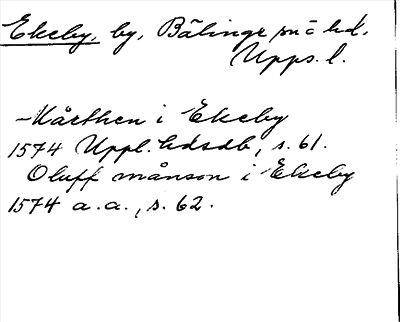 Ekeby, by, Bälinge sn o hd.
Upps. l.
- Mårthen i Ekeby
1574 Uppl. hdsdb, s. 61.
Oluff månson i Ekeby
1574 a.a., s. 62.